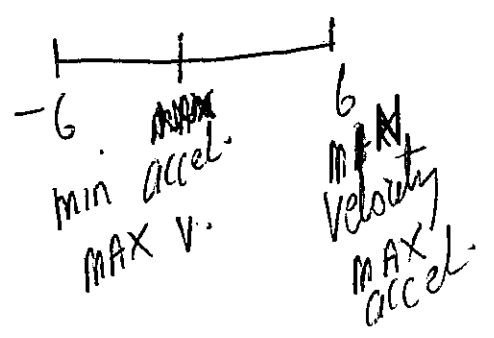 -6 6
min accel.
MAX V.
MIN
velocity
MAX
accel.